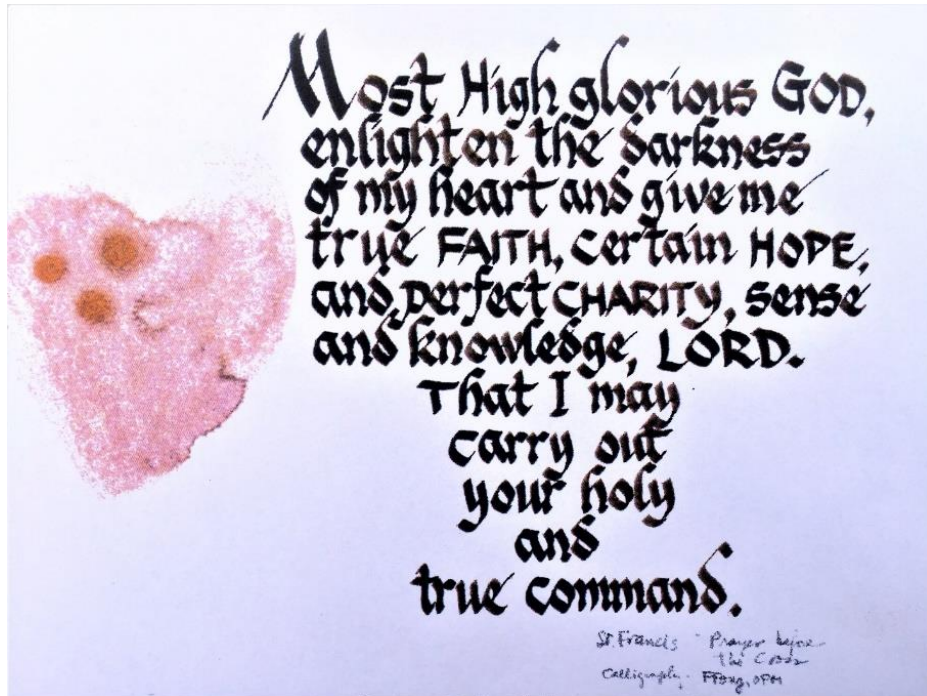 Most High glorious GOD,
enlighten the darkness
of my heart and give me
true FAITH, certain HOPE,
and perfect CHARITY, sense
and knowledge, LORD.
That I may
carry out
your holy
and
true command.
St. Francis - Prayer before
the Cross
Calligraphy - FFong, OFM